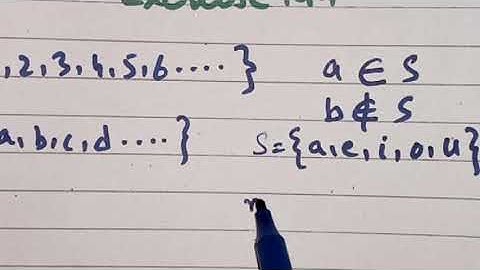 Exercise
,2,3,4,5,6....} a ∈ S
b ∉ S
a,b,c,d....} S={a,e,i,o,u}